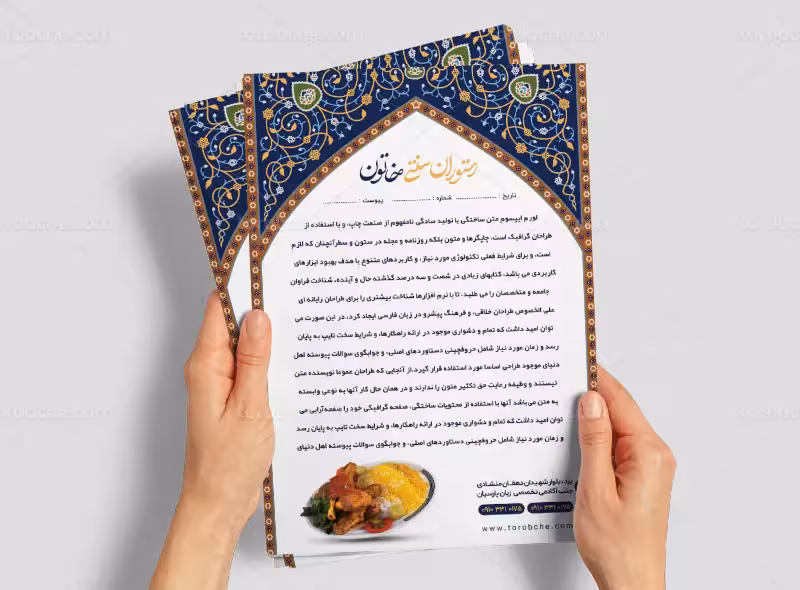 رستوران سنتی خاتون
تاریخ : ................ شماره : ................ پیوست : ................
لورم ایپسوم متن ساختگی با تولید سادگی نامفهوم از صنعت چاپ، و با استفاده از
طراحان گرافیک است، چاپگرها و متون بلکه روزنامه و مجله در ستون و سطرآنچنان که لازم
است، و برای شرایط فعلی تکنولوژی مورد نیاز، و کاربردهای متنوع با هدف بهبود ابزارهای
کاربردی می باشد، کتابهای زیادی در شصت و سه درصد گذشته حال و آینده، شناخت فراوان
جامعه و متخصصان را می طلبد، تا با نرم افزارها شناخت بیشتری را برای طراحان رایانه ای
علی الخصوص طراحان خلاقی، و فرهنگ پیشرو در زبان فارسی ایجاد کرد، در این صورت می
توان امید داشت که تمام و دشواری موجود در ارائه راهکارها، و شرایط سخت تایپ به پایان
رسد و زمان مورد نیاز شامل حروفچینی دستاوردهای اصلی، و جوابگوی سوالات پیوسته اهل
دنیای موجود طراحی اساسا مورد استفاده قرار گیرد.از آنجایی که طراحان عموما نویسنده متن
نیستند و وظیفه رعایت حق تکثیر متون را ندارند و در همان حال کار آنها به نوعی وابسته
به متن می‌باشد آنها با استفاده از محتویات ساختگی، صفحه گرافیکی خود را صفحه‌آرایی می
توان امید داشت که تمام و دشواری موجود در ارائه راهکارها، و شرایط سخت تایپ به پایان رسد
و زمان مورد نیاز شامل حروفچینی دستاوردهای اصلی، و جوابگوی سوالات پیوسته اهل دنیای
یزد، بلوار شهیدان دهقان منشادی
جنب آکادمی تخصصی زبان پارسیان
۰۹۱۰ ۳۳۱ ۰۱۷۵ ۰۹۱۰ ۳۳۱ ۰۱۷۵
www.torobche.com